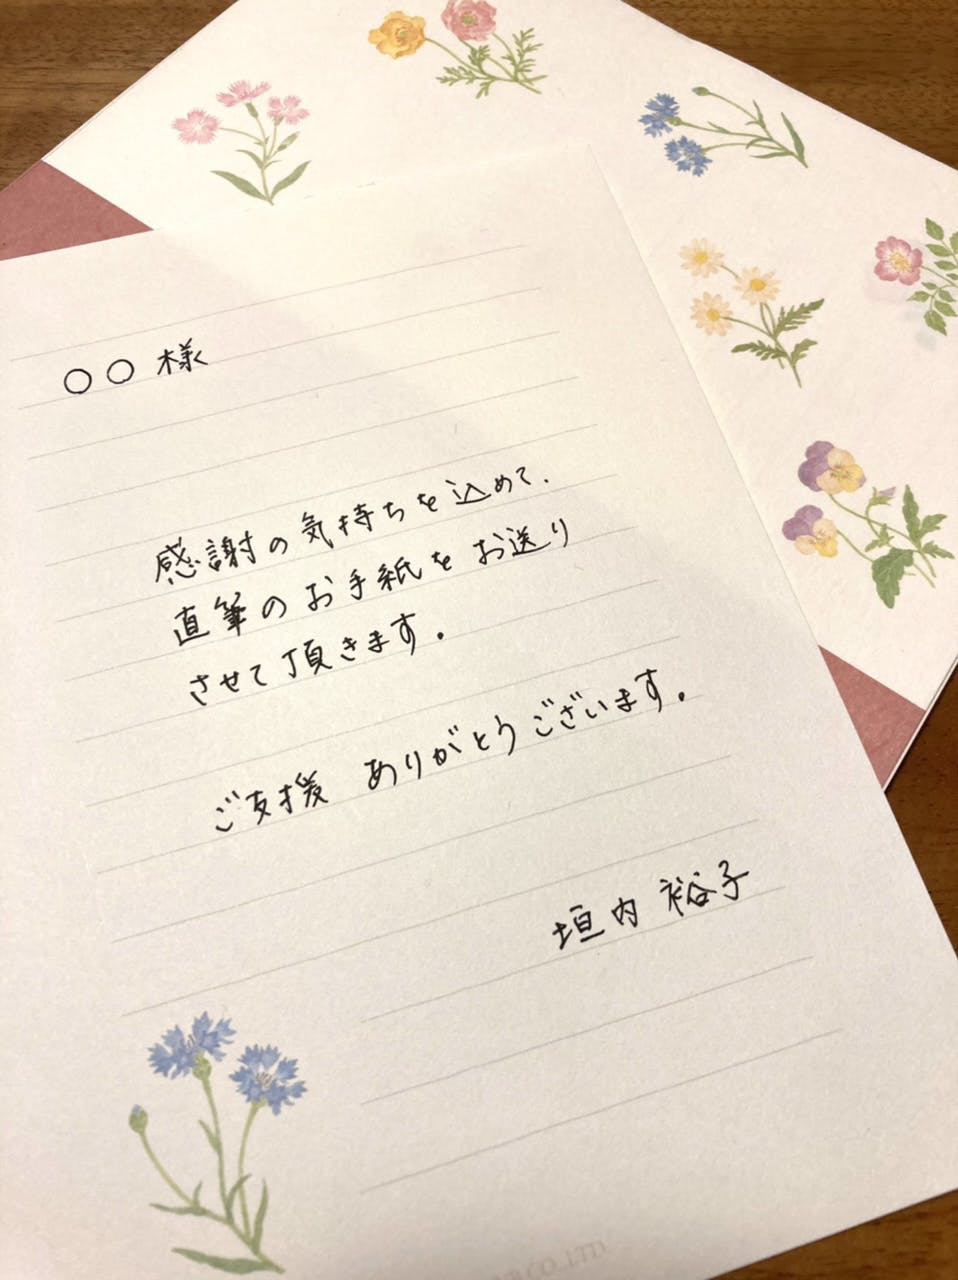 〇〇様
感謝の気持ちを込めて、
直筆のお手紙をお送り
させて頂きます。
ご支援 ありがとうございます。
垣内 裕子
CO.,LTD.